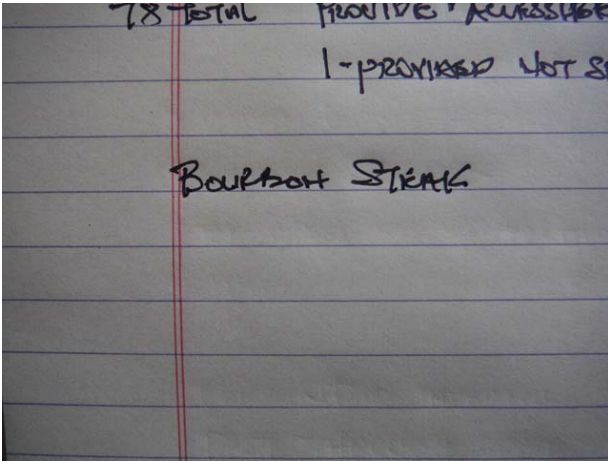 78 TOTAL PROVIDE
1-PROVIDED NOT
BOURBON STEAK